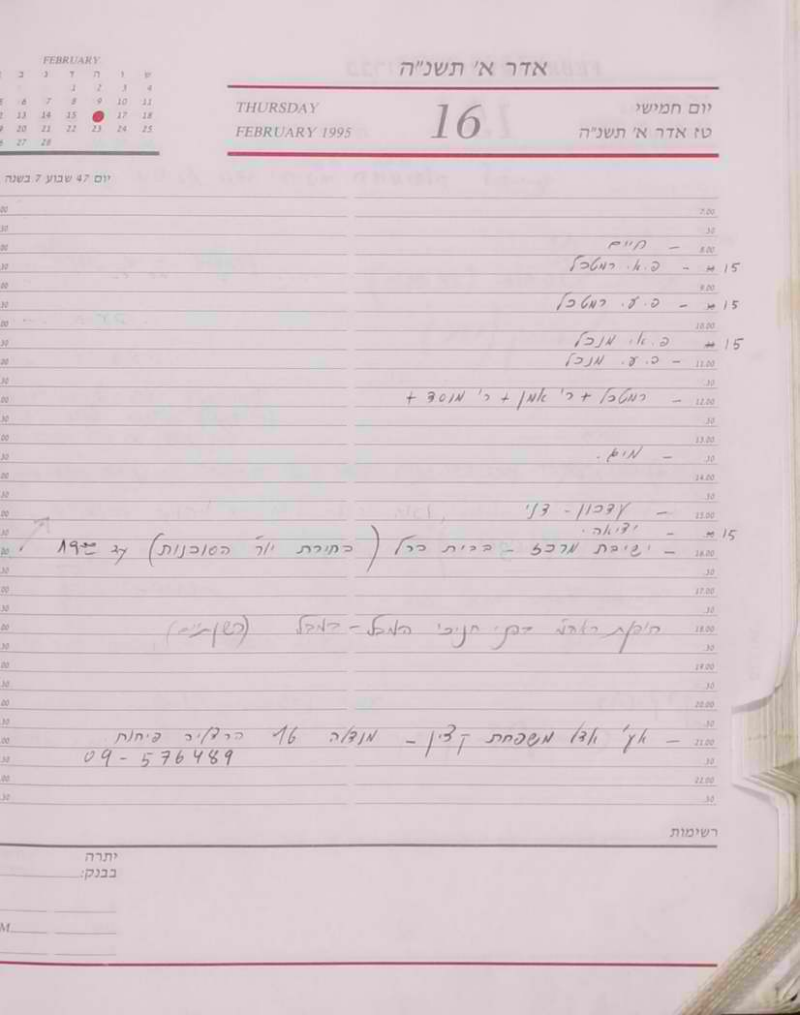 אדר א' תשנ"ה
FEBRUARY
ב ג ד ה ו ש
1 2 3 4
6 7 8 9 10 11
13 14 15 17 18
20 21 22 23 24 25
27 28
THURSDAY 16 יום חמישי
FEBRUARY 1995 טז אדר א' תשנ"ה
יום 47 שבוע 7 בשנה
7.00
.30
8.00 - חיים
15 - פ.א. רמטכל
9.00
15 - פ.ע. רמטכל
10.00
15 פ.א. מנכל
11.00 - פ.ע. מנכל
.30
12.00 - רמטכל + ר' אמן + ר' מוסד +
.30
13.00
.30 -
14.00
.30
15.00 - עדכון - דני
15 -
16.00 - ישיבת מרכז - בבית ברל (בחירת יו"ר הסוכנות) עד
.30
17.00
.30
18.00
.30
19.00
.30
20.00
.30
21.00 - אצל משפחת קצין - 16 הרצליה פיתוח
.30 09-576489
22.00
.30
רשימות
יתרה
בבנק: